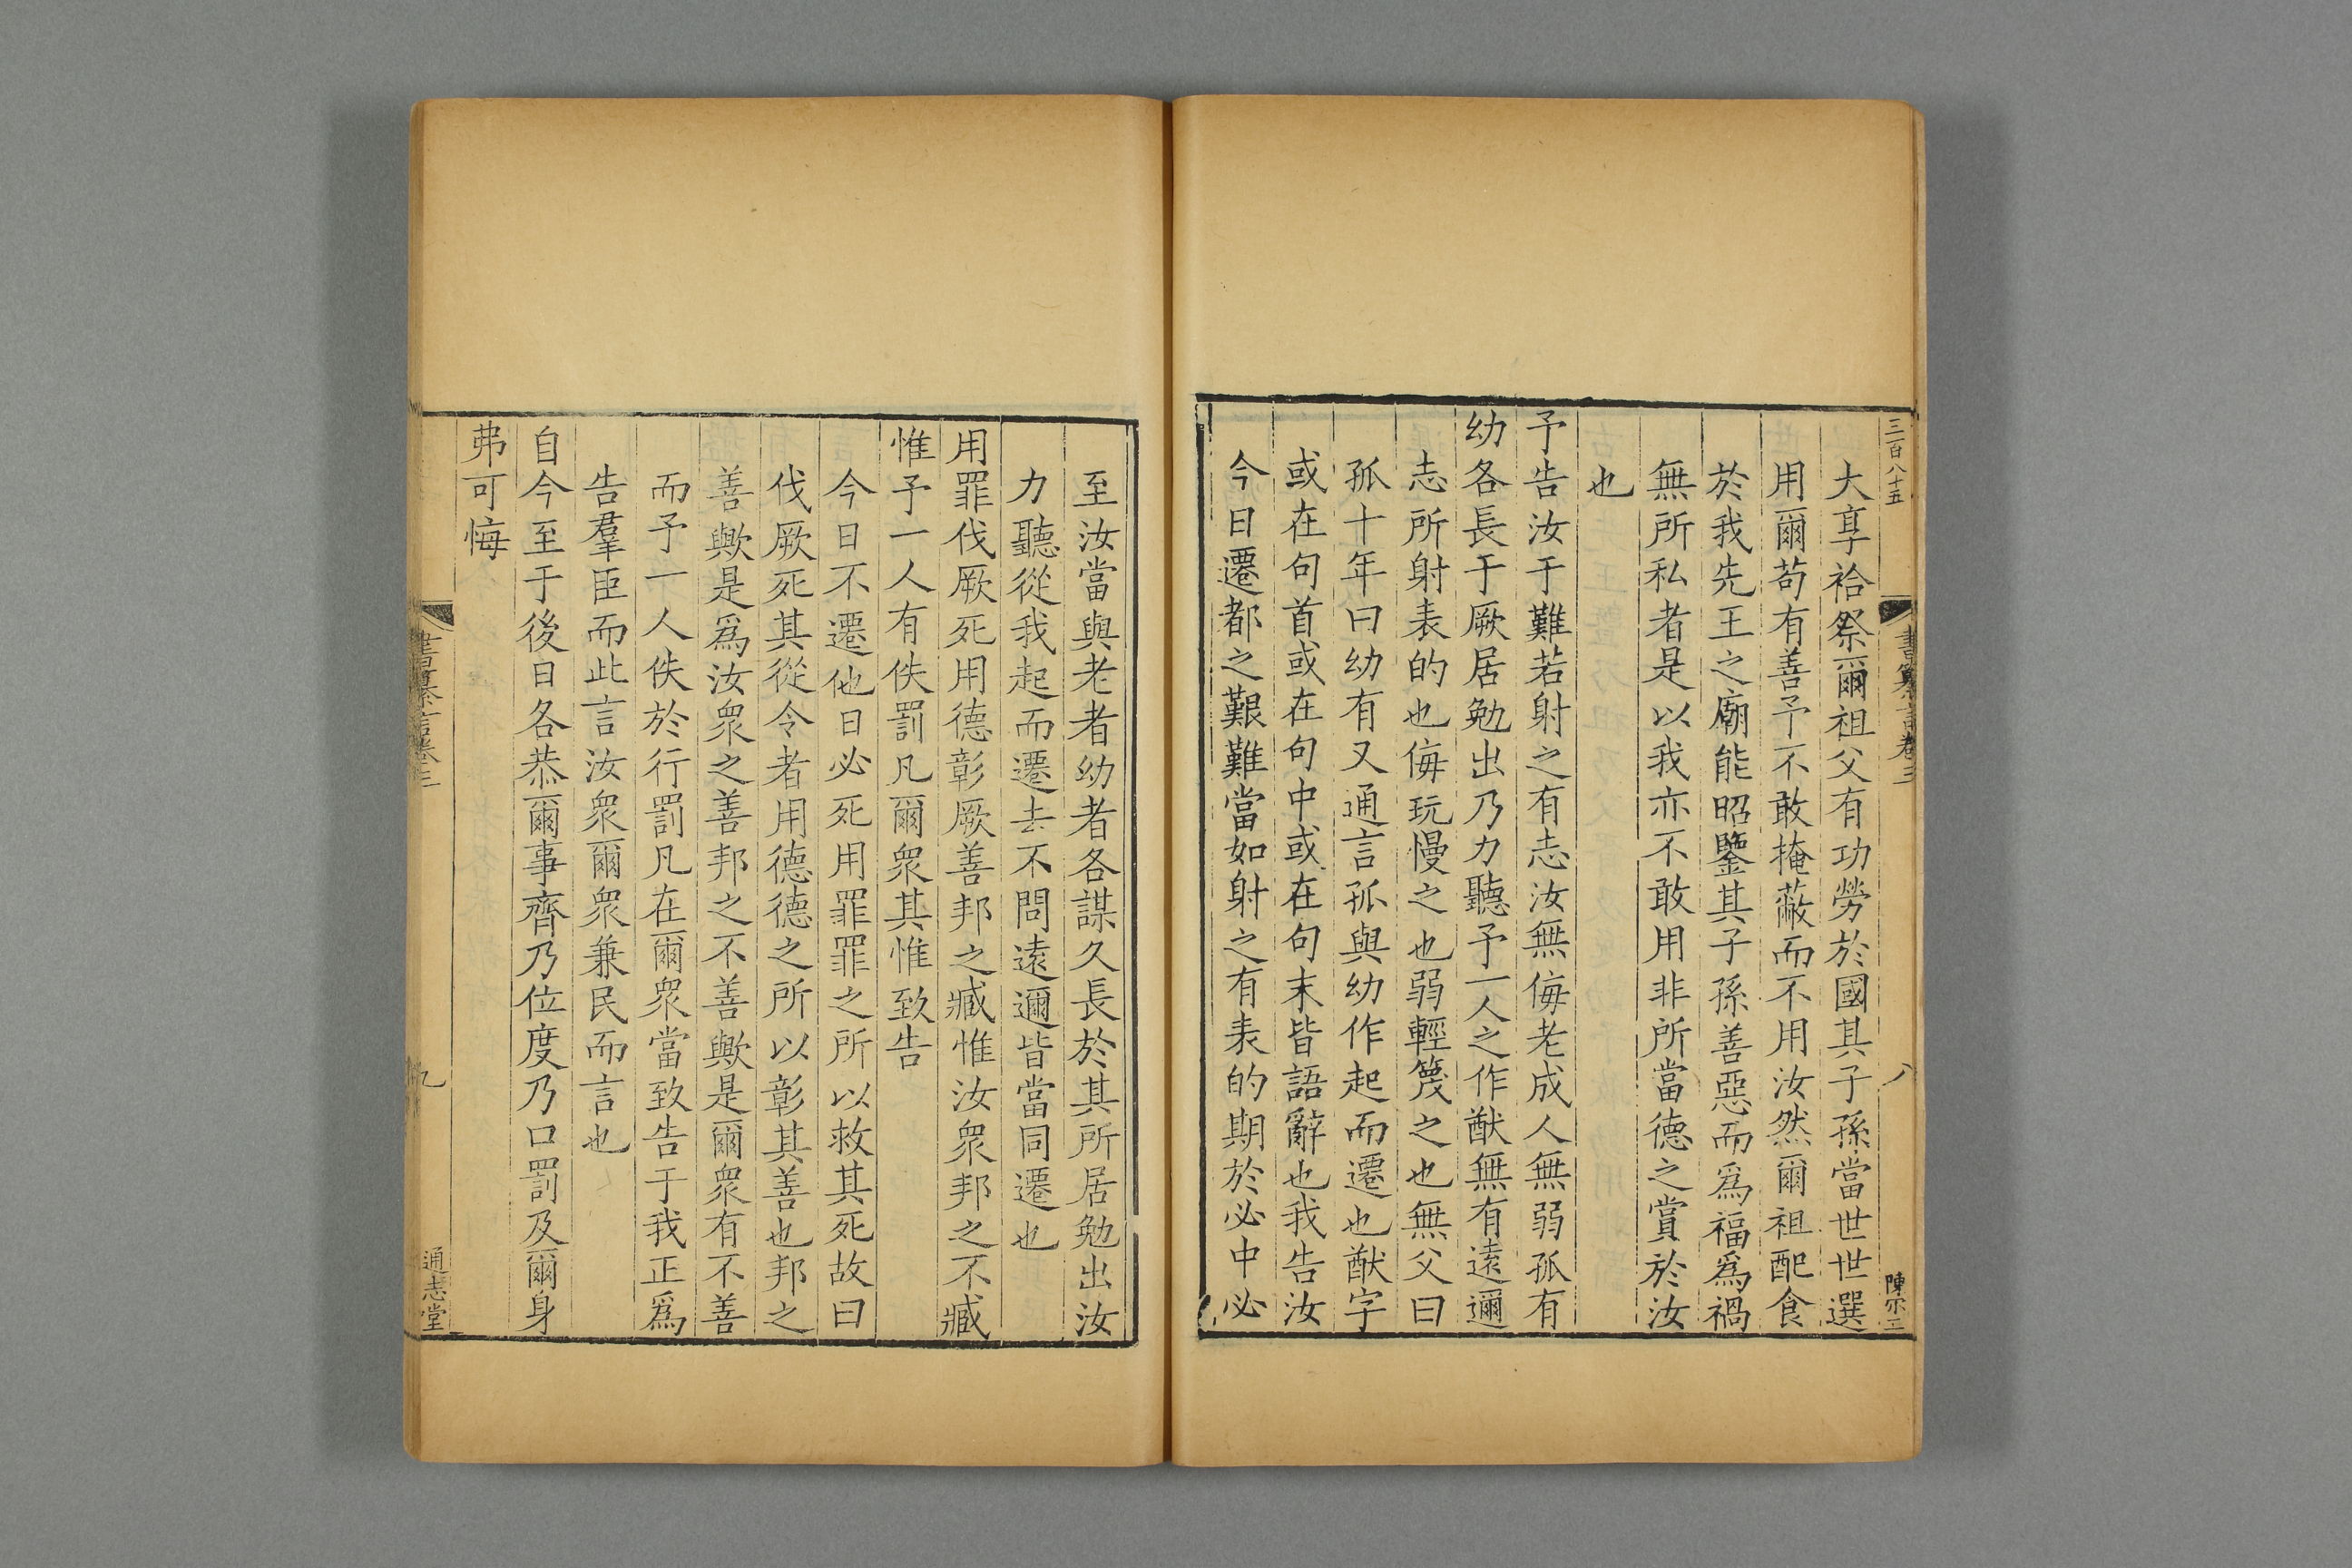 三百八十五
書纂言卷三
八
陳尔工
大享祫祭爾祖父有功勞於國其子孫當世世選
用爾苟有善予不敢掩蔽而不用汝然爾祖配食
於我先王之廟能昭鑒其子孫善惡而爲福爲禍
無所私者是以我亦不敢用非所當德之賞於汝
也
予告汝于難若射之有志汝無侮老成人無弱孤有
幼各長于厥居勉出乃力聽予一人之作猷無有遠邇
志所射表的也侮玩慢之也弱輕篾之也無父曰
孤十年曰幼有又通言孤與幼作起而遷也猷字
或在句首或在句中或在句末皆語辭也我告汝
今日遷都之艱難當如射之有表的期於必中必
至汝當與老者幼者各謀久長於其所居勉出汝
力聽從我起而遷去不問遠邇皆當同遷也
用罪伐厥死用德彰厥善邦之臧惟汝衆邦之不臧
惟予一人有佚罰凡爾衆其惟致告
今日不遷他日必死用罪罪之所以救其死故曰
伐厥死其從令者用德德之所以彰其善也邦之
善歟是爲汝衆之善邦之不善歟是爾衆有不善
而予一人佚於行罰凡在爾衆當致告于我正爲
告羣臣而此言汝衆爾衆兼民而言也
自今至于後日各恭爾事齊乃位度乃口罰及爾身
弗可悔
書纂言卷三
九
通志堂